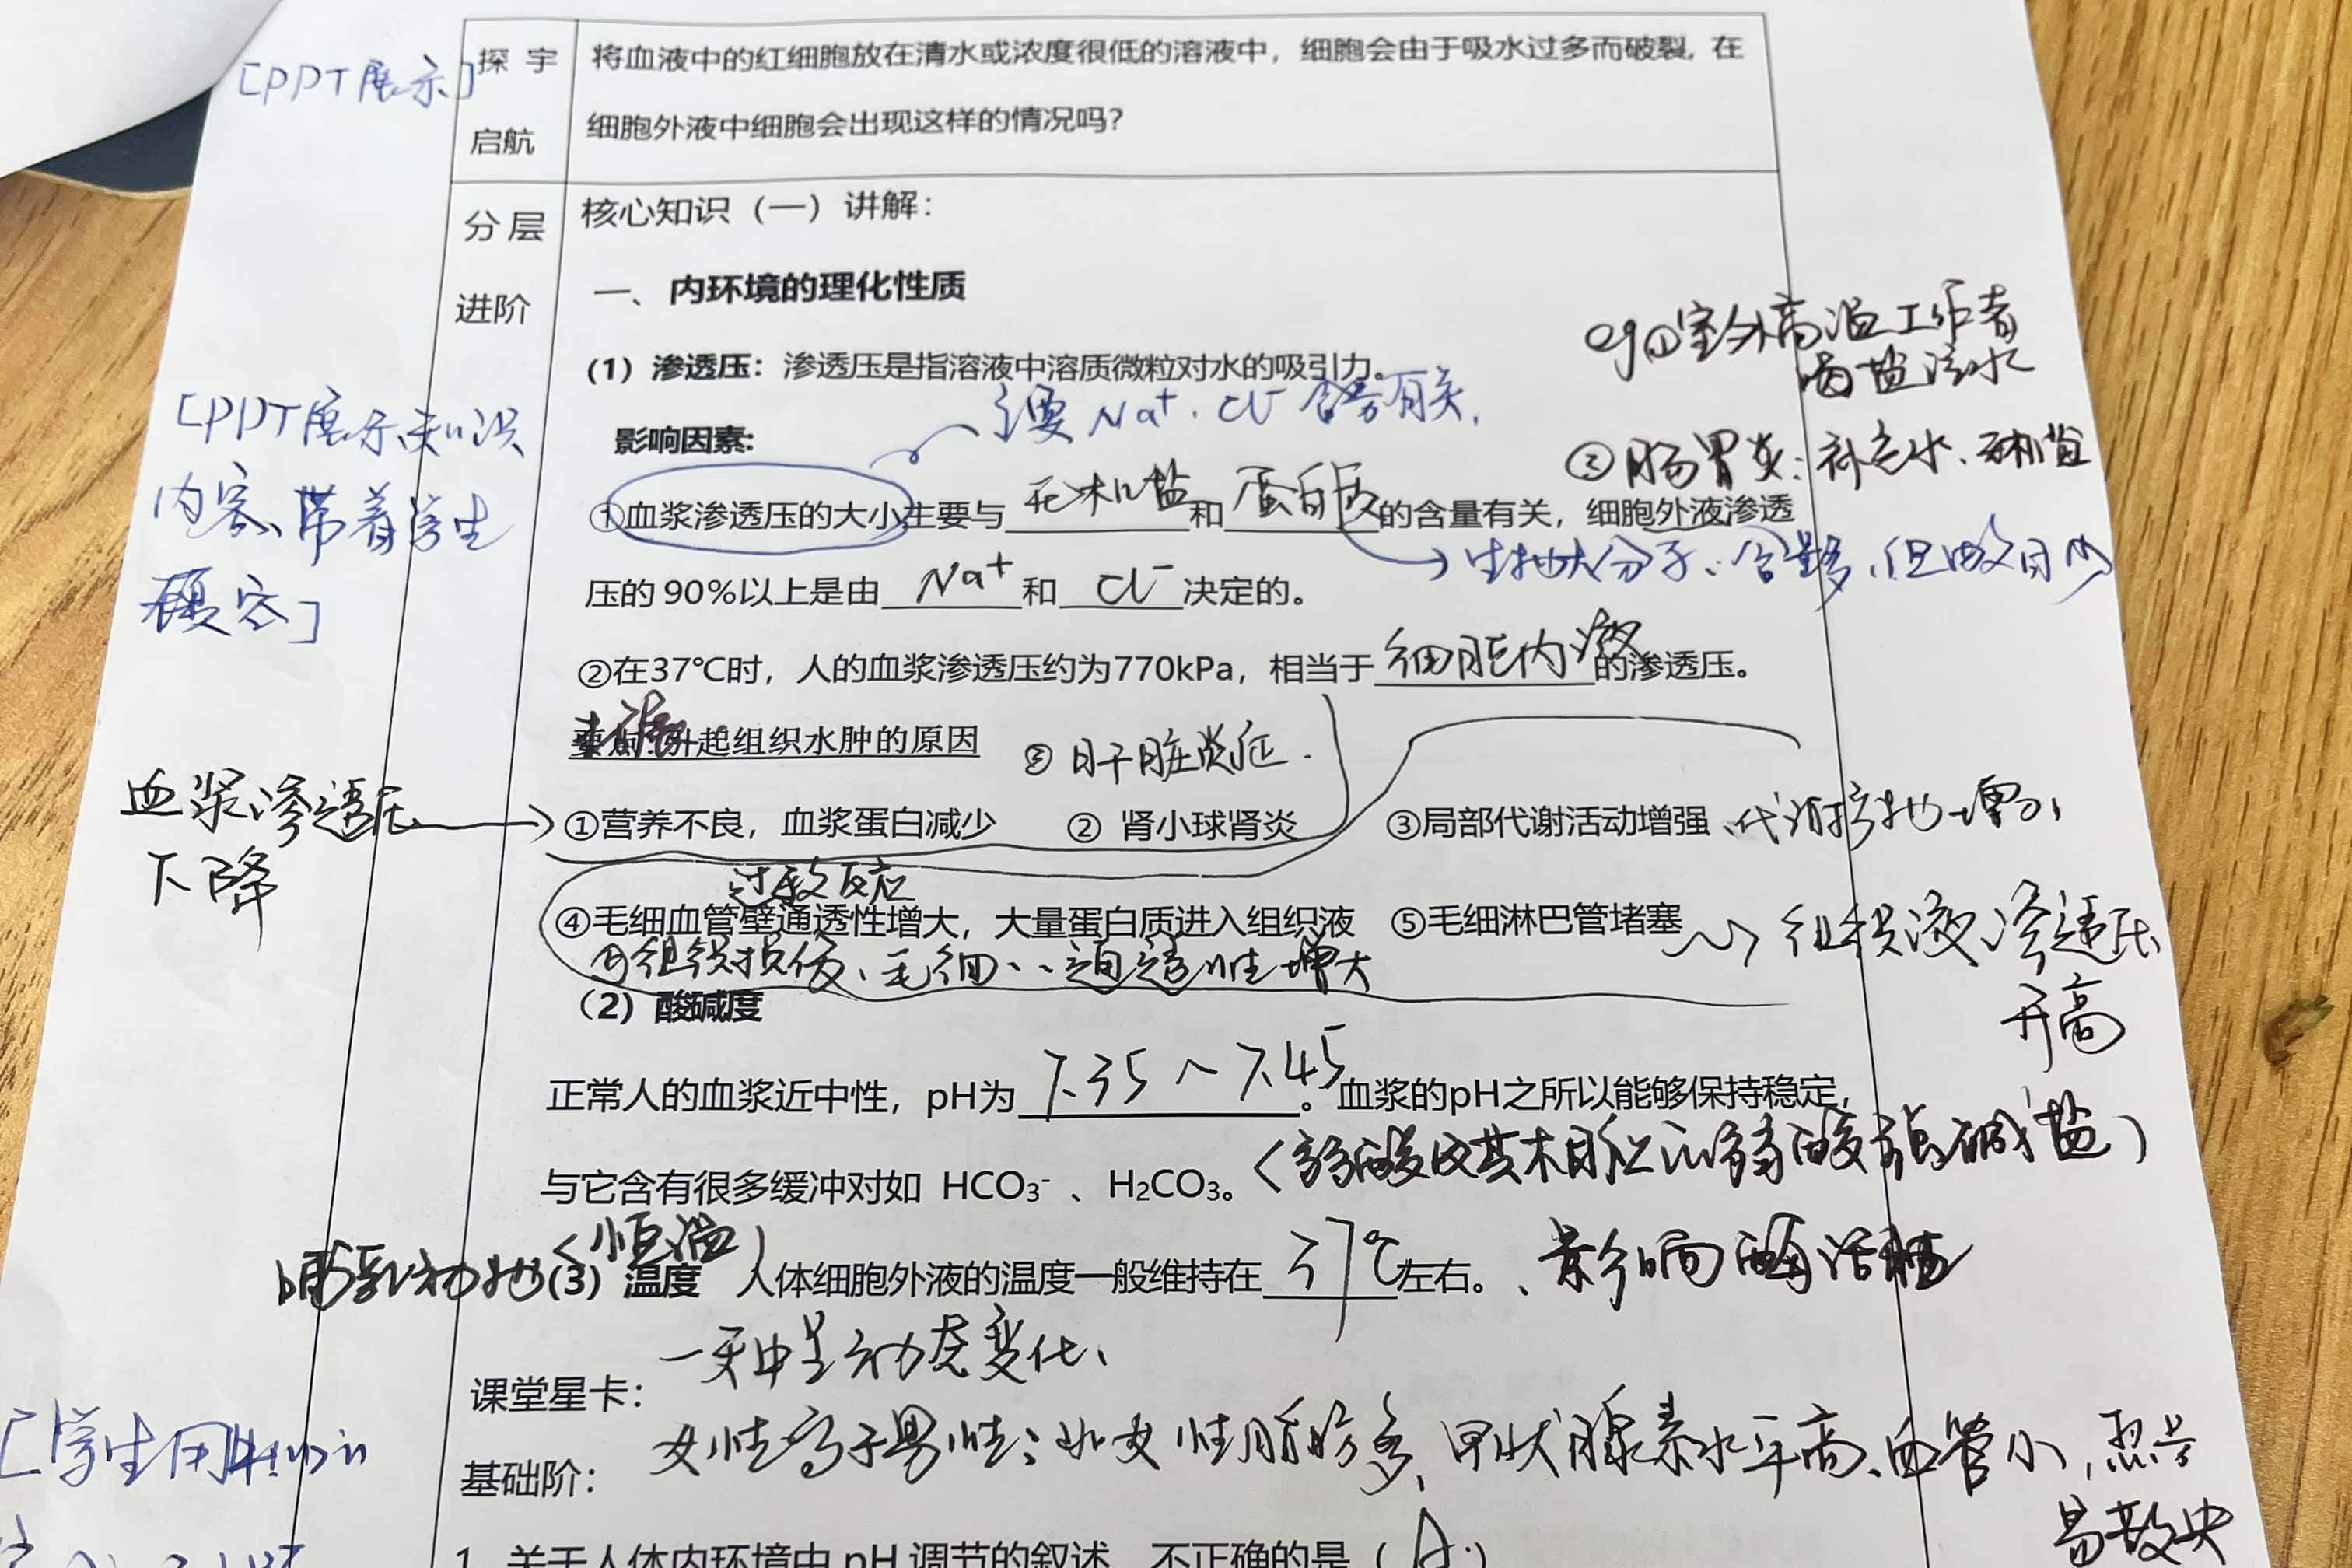 [PPT展示]
探宇
启航
将血液中的红细胞放在清水或浓度很低的溶液中，细胞会由于吸水过多而破裂，在
细胞外液中细胞会出现这样的情况吗？
分层
进阶
核心知识（一）讲解：
一、内环境的理化性质
eg①室外高温工作者
喝盐汽水
（1）渗透压：渗透压是指溶液中溶质微粒对水的吸引力。
主要Na⁺、Cl⁻含量有关，
[PPT展示知识
内容、带着学生
影响因素:
②肠胃炎：补充水、无机盐
①血浆渗透压的大小主要与无机盐和蛋白质的含量有关，细胞外液渗透
→生物大分子、含量多，但数目少
压的 90%以上是由 Na⁺ 和 Cl⁻ 决定的。
②在37℃时，人的血浆渗透压约为770kPa，相当于细胞内液的渗透压。
引起组织水肿的原因
③肝脏炎症.
血浆渗透压
下降
①营养不良，血浆蛋白减少 ② 肾小球肾炎 ③局部代谢活动增强、代谢产物增多，
过敏反应
④毛细血管壁通透性增大，大量蛋白质进入组织液 ⑤毛细淋巴管堵塞
组织液渗透压
升高
组织损伤、毛细、、通透性增大
（2）酸碱度
正常人的血浆近中性，pH为 7.35～7.45。血浆的pH之所以能够保持稳定，
与它含有很多缓冲对如 HCO₃⁻ 、H₂CO₃。
（弱酸及其相应的弱酸强碱盐）
（恒温）
哺乳动物
（3）温度 人体细胞外液的温度一般维持在 37℃ 左右。、影响酶活性
一天中呈动态变化、
课堂星卡：
女性高于男性：如女性脂肪多，甲状腺素水平高、血管小，热量
易散失
基础阶：
[学生用
1. 关于人体内环境中 pH 调节的叙述，不正确的是（A.）